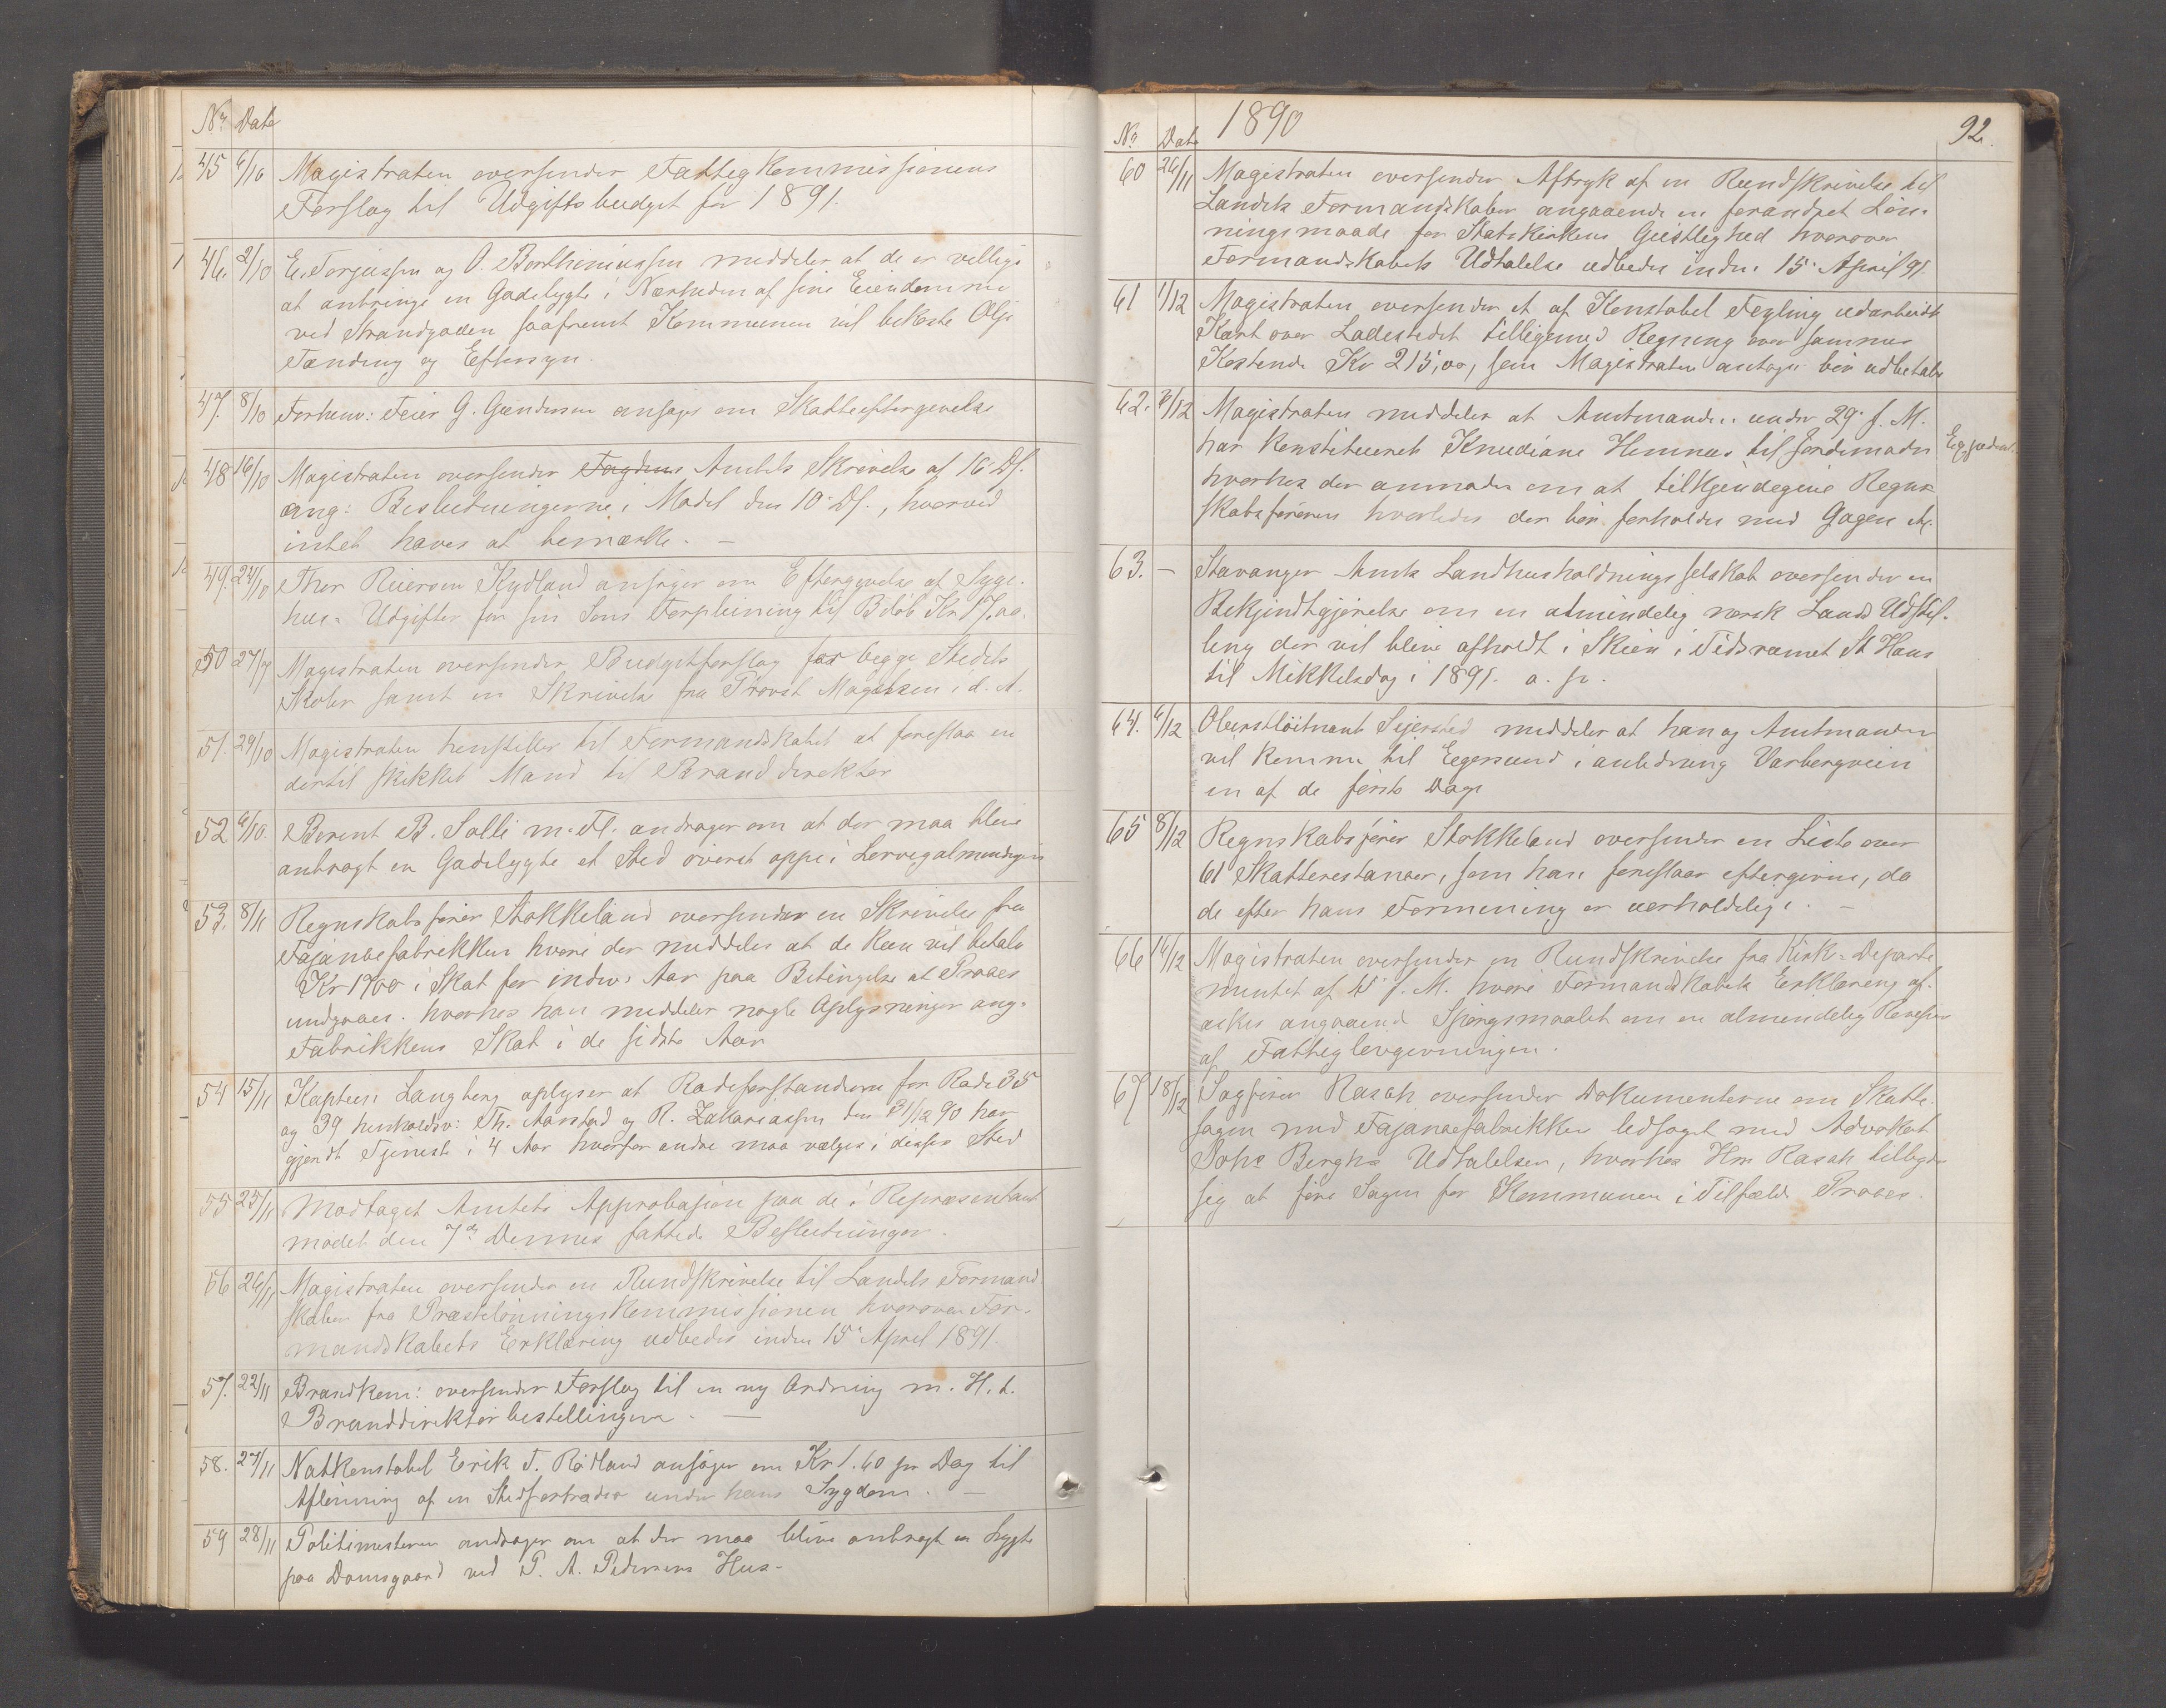 No. Date
45 6/10 Magistraten oversender Fattigkommissionens
Forslag til Udgiftsbudget for 1891.
46. 2/10 E. Torjussen og O. Berthiniussen meddeler at de er villige
at anbringe en Gadelygte i Nærheden af sine Eiendomme
ved Strandgaden saafremt Kommunen vil bekoste Olje
Tænding og Eftersyn.
47. 8/10 Forhenv: Feier G. Gundersen ansøger om Skatteeftergivelse
48 16/10 Magistraten oversender Amtets Skrivelse af 16 Ds.
ang: Beslutningerne i Mødet den 10 Ds., hvorved
intet haves at bemærke. —
49. 24/10 Thor Reiersen Kydland ansøger om Eftergivelse af Syge-
hus- Udgifter for sin Søns Forpleining til Beløb Kr 17,00.
50 27/9 Magistraten oversender Budgetforslag for begge Stedets
Skoler samt en Skrivelse fra Provst Magelssen i d. A.
51. 29/10 Magistraten henstiller til Formandskabet at foreslaa en
dertil skikket Mand til Branddirektør
52 6/10. Berent B. Salli m. Fl. andrager om at der maa blive
anbragt en Gadelygte et Sted øverst oppe i Lervigalmendigen
53. 8/11 Regnskabsfører Stokkeland oversender en Skrivelse fra
Fajancefabrikken hvori der meddeles at de kun vil betale
Kr 1700 i Skat for indev: Aar paa Betingelse at Proces
undgaaes. hvorhos han meddeler nogle Oplysninger ang.
Fabrikkens Skat i de sidste Aar
54 15/11 Kaptein Langberg oplyser at Rodeforstanderne for Rode 35
og 39 henholdsv: Th. Aarstad og R. Zakariassen den 31/12 90 har
gjordt Tjeneste i 4 Aar hvorfor andre maa vælges i disses Sted
55 25/11 Modtaget Amtets Approbasion paa de i Repræsentant
mødet den 7de Dennes fattede Beslutninger.
56 26/11 Magistraten oversender en Rundskrivelse til Landets Formand
skaber fra Præstelønningskommissionen hvorover For-
mandskabets Erklæring udbedes inden 15 April 1891.
57. 22/11 Brandkom: oversender Forslag til en ny Ordning m. H. t.
Branddirektørbestillingen. —
58. 27/11 Natkonstabel Erik T. Rødland ansøger om Kr 1.60 pr Dag til
Aflønning af en Stedfortræder under hans Sygdom. —
59 28/11 Politimesteren andrager om at der maa blive anbragt en Lygte
paa Damsgaard ved P. A. Pedersens Hus-
No. Date 1890 92.
60 26/11 Magistraten oversender Aftryk af en Rundskrivelse til
Landets Formandskaber angaaende en forandret Løn-
ningsmaade for Statskirkens Geistlighed hvorover
Formandskabets Udtalelse udbedes inden 15. April 91.
61 1/12 Magistraten oversender et af Konstabel Tegling udarbeidt
Kart over Ladestedet tilligemed Regning over samme
Kostende Kr 215,00, som Magistraten antager bør udbetales
62. 3/12 Magistraten meddeler at Amtmanden under 29. f. M.
har konstitueret Knudiane Hemnes til Jordemoder
hvorhos der anmodes om at tilkjendegive Regn-
skabsføreren hvorledes der bør forholdes med Gagen
63. — Stavanger Amts Landhusholdningsselskab oversender en
Bekjendtgjørelse om en almindelig norsk Lands Udstil-
ling der vil blive afholdt i Skien i Tidsrumet St Hans
til Mikkelsdag i 1891. a. st.
64. 6/12 Oberstløitnant Sejersted meddeler at han og Amtmanden
vil komme til Egersund i anledning Varbergveien
en af de første Dage
65 8/12 Regnskabsfører Stokkeland oversender en Liste over
61 Skatterestancer, som han foreslaar eftergivne, da
de efter hans Formening er uerholdelige. —
66 14/12 Magistraten oversender en Rundskrivelse fra Kirk-Departe
mentet af f. M. hvori Formandskabets Erklæring af-
æskes angaaend Spørgsmaalet om en almindelig Revision
af Fattiglovgivningen.
67 18/12 Sagfører Rasch oversender Dokumenterne om Skatte-
sagen med Fajancefabrikken ledsaget med Advokat
Johs Berghs Udtalelser, hvorhos Hr. Rasch tilbyder
sig at føre Sagen for Kommunen i Tilfælde Proces.